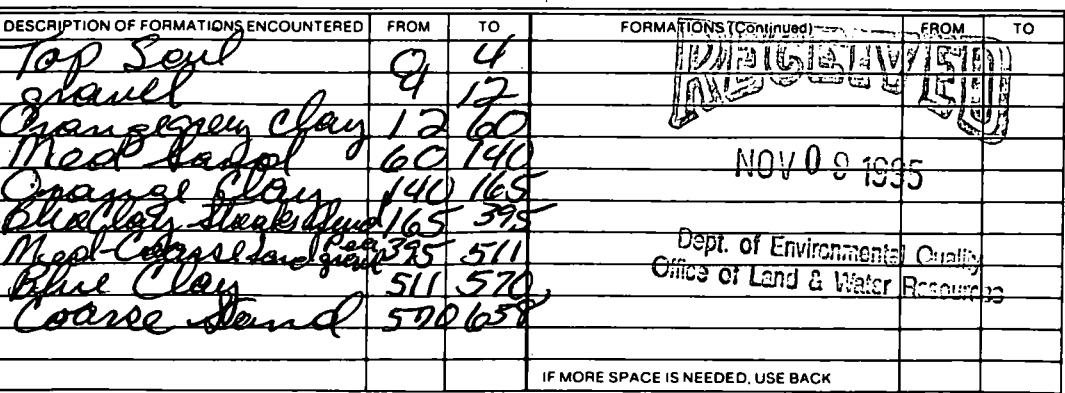 DESCRIPTION OF FORMATIONS ENCOUNTERED FROM TO FORMATIONS (Continued) FROM TO
Top Soul 0 4
gravel 4 12
Orange grey Clay 12 60
Med Sand 60 140
Orange Clay 140 165
Blue Clay Streaks Sand 165 395
Med-Coarse Sand Pea gravel 395 511
Blue Clay 511 570
Coarse Sand 570 658
RECEIVED
NOV 09 1995
Dept. of Environmental Quality
Office of Land & Water Resources
IF MORE SPACE IS NEEDED, USE BACK